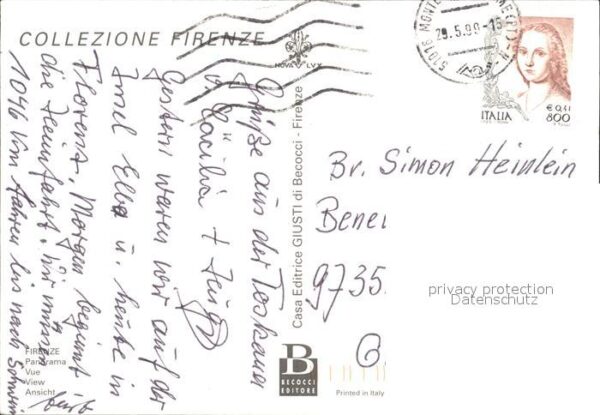 COLLEZIONE FIRENZE
NOVA LVX
29.5.99-15
ITALIA
€ 0,41
800
Grüße aus der Toskana
v. Cäcilia +
Gestern waren wir auf der
Insel Elba u. heute in
Florenz. Morgen beginnt
die Heimfahrt. Wir müssen
1046 km fahren bis nach
Casa Editrice GIUSTI di Becocci - Firenze
Br. Simon Heinlein
Bene
9735
G
privacy protection
Datenschutz
FIRENZE
Panorama
Vue
View
Ansicht
B
BECOCCI
EDITORE
Printed in Italy